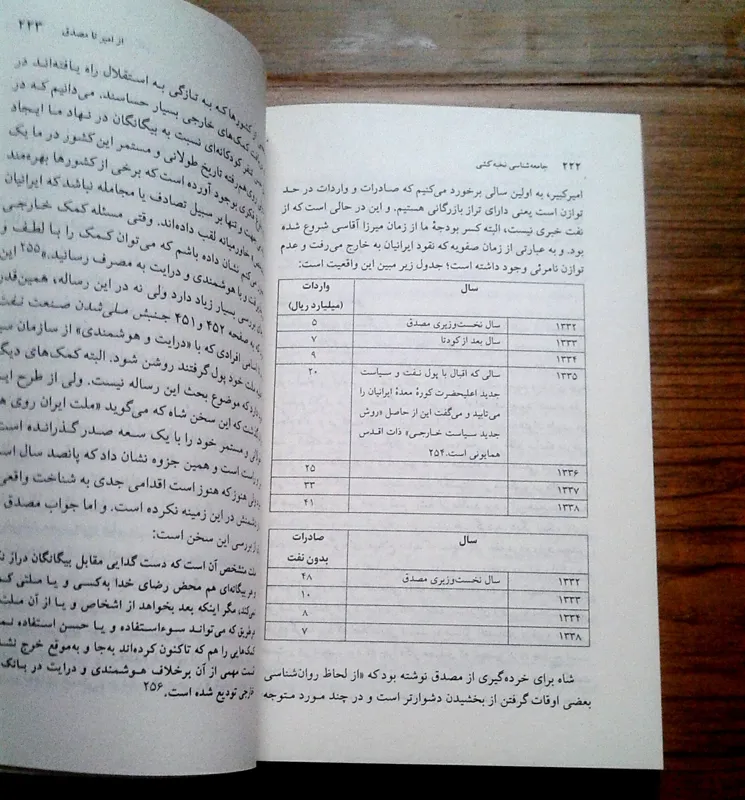 ۲۲۲ جامعه‌شناسی نخبه‌کشی
امیرکبیر، به اولین سالی برخورد می‌کنیم که صادرات و واردات در حد
توازن است یعنی دارای تراز بازرگانی هستیم. و این در حالی است که از
نفت خبری نیست، البته کسر بودجهٔ ما از زمان میرزا آقاسی شروع شده
بود. و به عبارتی از زمان صفویه که نقود ایرانیان به خارج می‌رفت و عدم
توازن نامرئی وجود داشته است؛ جدول زیر مبین این واقعیت است:
سال واردات
(میلیارد ریال)
۱۳۳۲ سال نخست‌وزیری مصدق ۵
۱۳۳۳ سال بعد از کودتا ۷
۱۳۳۴ ۹
۱۳۳۵ سالی که اقبال با پول نفت و سیاست ۲۰
جدید اعلیحضرت کورهٔ معدهٔ ایرانیان را
می‌تابید و می‌گفت این از حاصل «روش
جدید سیاست خارجی» ذات اقدس
همایونی است.۲۵۴
۱۳۳۶ ۲۵
۱۳۳۷ ۳۳
۱۳۳۸ ۴۱
سال صادرات
بدون نفت
۱۳۳۲ سال نخست‌وزیری مصدق ۴۸
۱۳۳۳ ۱۰
۱۳۳۴ ۸
۱۳۳۸ ۷
شاه برای خرده‌گیری از مصدق نوشته بود که «از لحاظ روان‌شناسی
بعضی اوقات گرفتن از بخشیدن دشوارتر است و در چند مورد متوجه
از امیر تا مصدق ۲۲۳
از کشورها که به تازگی به استقلال راه یافته‌اند در
کمک‌های خارجی بسیار حساسند. می‌دانیم که در
کودکانه‌ای نسبت به بیگانگان در نهاد ما ایجاد
رفته تاریخ طولانی و مستمر این کشور در ما یک
فکری بوجود آورده است که برخی از کشورها بهره‌مند
جهت و تنها بر سبیل تصادف یا مجامله نباشد که ایرانیان
خاورمیانه لقب داده‌اند. وقتی مسئله کمک خارجی
کنم نشان داده باشم که می‌توان کمک را با لطف و
و با هوشمندی و درایت به مصرف رسانید.»۲۵۵ این
بررسی بسیار زیاد دارد ولی نه در این رساله، همین‌قدر
به صفحه ۴۵۲ و ۴۵۱ جنبش ملی‌شدن صنعت نفت
افرادی که با «درایت و هوشمندی» از سازمان
ملت خود پول گرفتند روشن شود. البته کمک‌های
که موضوع بحث این رساله نیست. ولی از طرح
که این سخن شاه که می‌گوید «ملت ایران روی
و مستمر خود را با یک سعه صدر گذرانده است
است و همین جزوه نشان داد که پانصد سال است
هنوز که هنوز است اقدامی جدی به شناخت واقعی
در این زمینه نکرده است. و اما جواب مصدق
بررسی این سخن است:
مشخص آن است که دست گدایی مقابل بیگانگان دراز
بیگانه‌ای هم محض رضای خدا به‌کسی و یا ملتی
مگر اینکه بعد بخواهد از اشخاص و یا از آن
طریق که می‌تواند سوءاستفاده و یا حسن استفاده
کمک‌هایی را هم که تاکنون کرده‌اند به‌جا و به‌موقع خرج
مهمی از آن برخلاف هوشمندی و درایت در بانک
خارجی تودیع شده است.۲۵۶